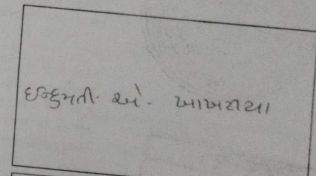 ઇન્દુમતી. એ. ખાખરાયા